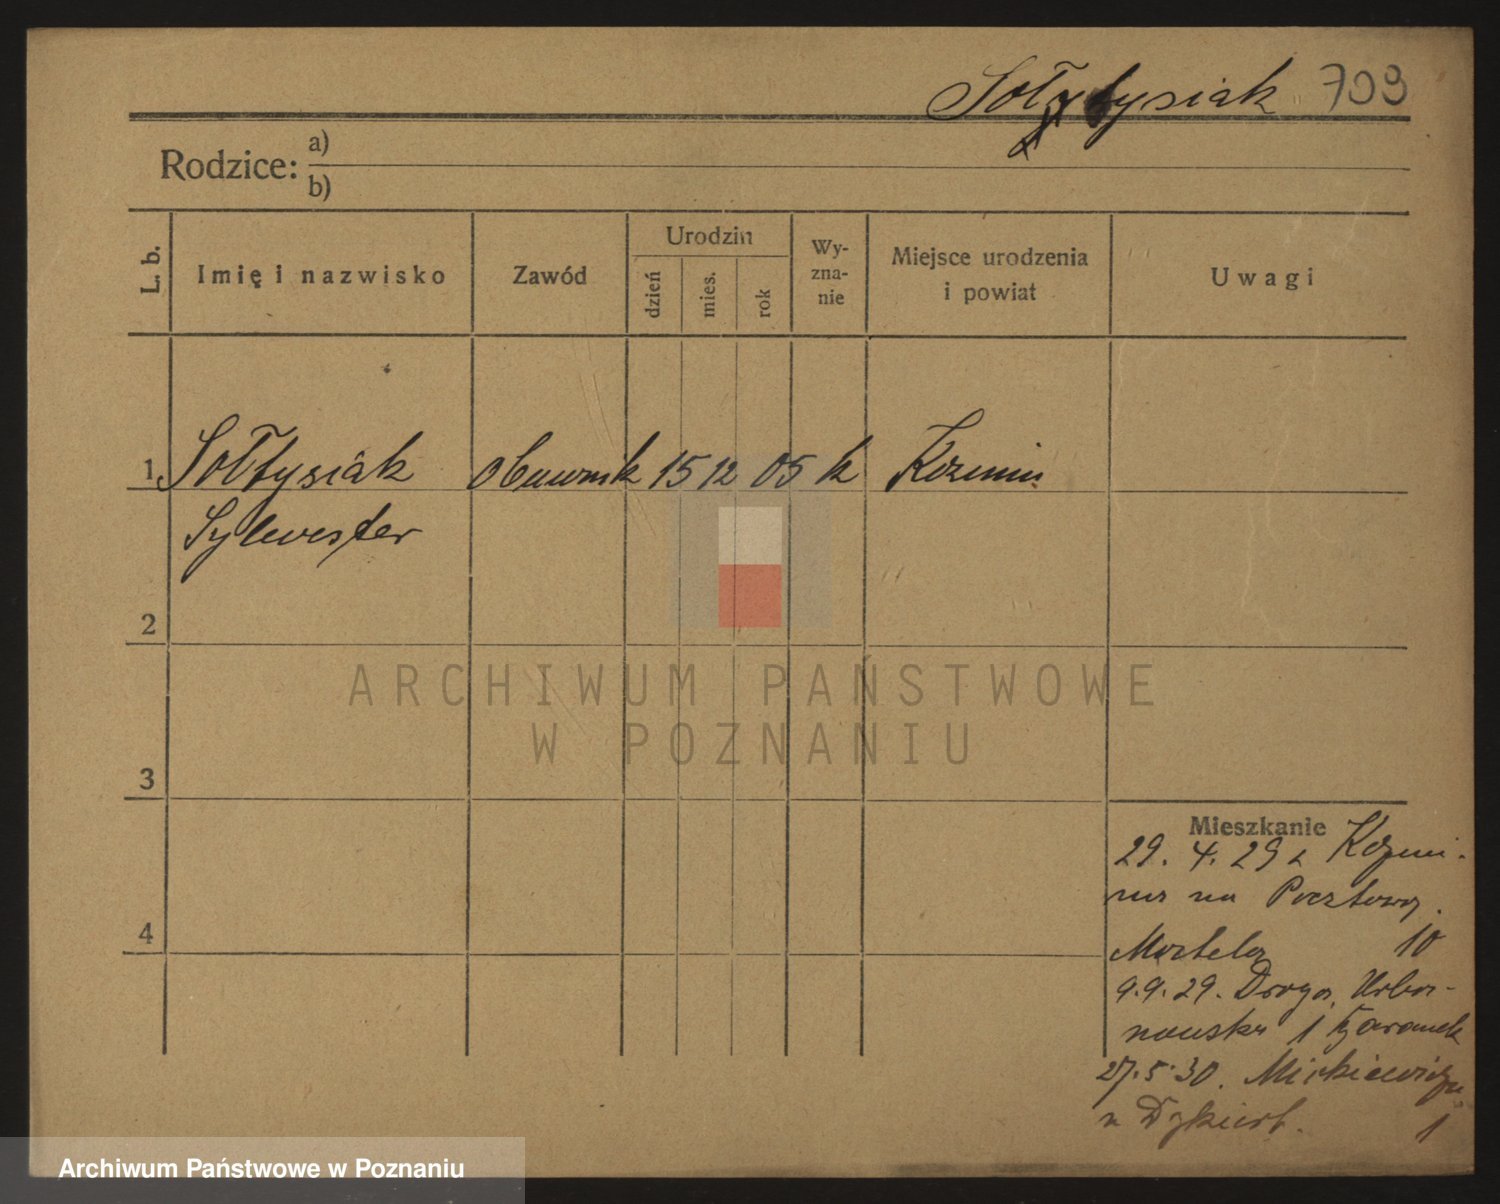 Sołtysiak 709
Rodzice: a)
b)
L. b. Imię i nazwisko Zawód Urodzin dzień mies. rok Wy-zna-nie Miejsce urodzenia i powiat Uwagi
1 Sołtysiak obuwnik 15 12 05 k Kozmin
Sylwester
2
3
4
Mieszkanie
29. 4. 29 z Kozmi-
na na Pocztową
10
9.9.29. Droga Urba-
nowska 1
27.5.30. Mickiewicza
u Dykiert. 1
ARCHIWUM PAŃSTWOWE
W POZNANIU
Archiwum Państwowe w Poznaniu